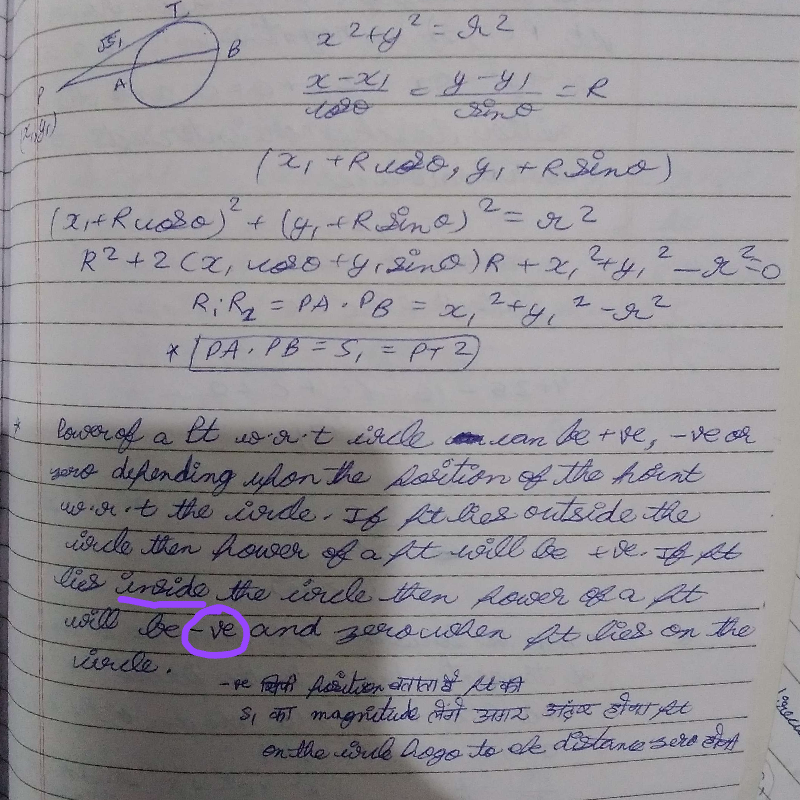 T
√S₁
B
A
P
(x₁,y₁)
x²+y² = r²
x-x₁/cosθ = y-y₁/sinθ = R
(x₁ + R cosθ, y₁ + R sinθ)
(x₁+R cosθ)² + (y₁+R sinθ)² = r²
R² + 2(x₁ cosθ + y₁ sinθ)R + x₁² + y₁² - r² = 0
R₁·R₂ = PA · PB = x₁² + y₁² - r²
* PA · PB = S₁ = PT2
* Power of a Pt w.r.t circle can be +ve, -ve or
zero depending upon the position of the point
w.r.t the circle. If pt lies outside the
circle then power of a pt will be +ve. If pt
lies inside the circle then power of a pt
will be -ve and zero when pt lies on the
circle.
-ve सिर्फ position बताता है pt की
S₁ का magnitude लेंगे अगर अंदर होगा pt
on the circle hoga to distance zero होगा